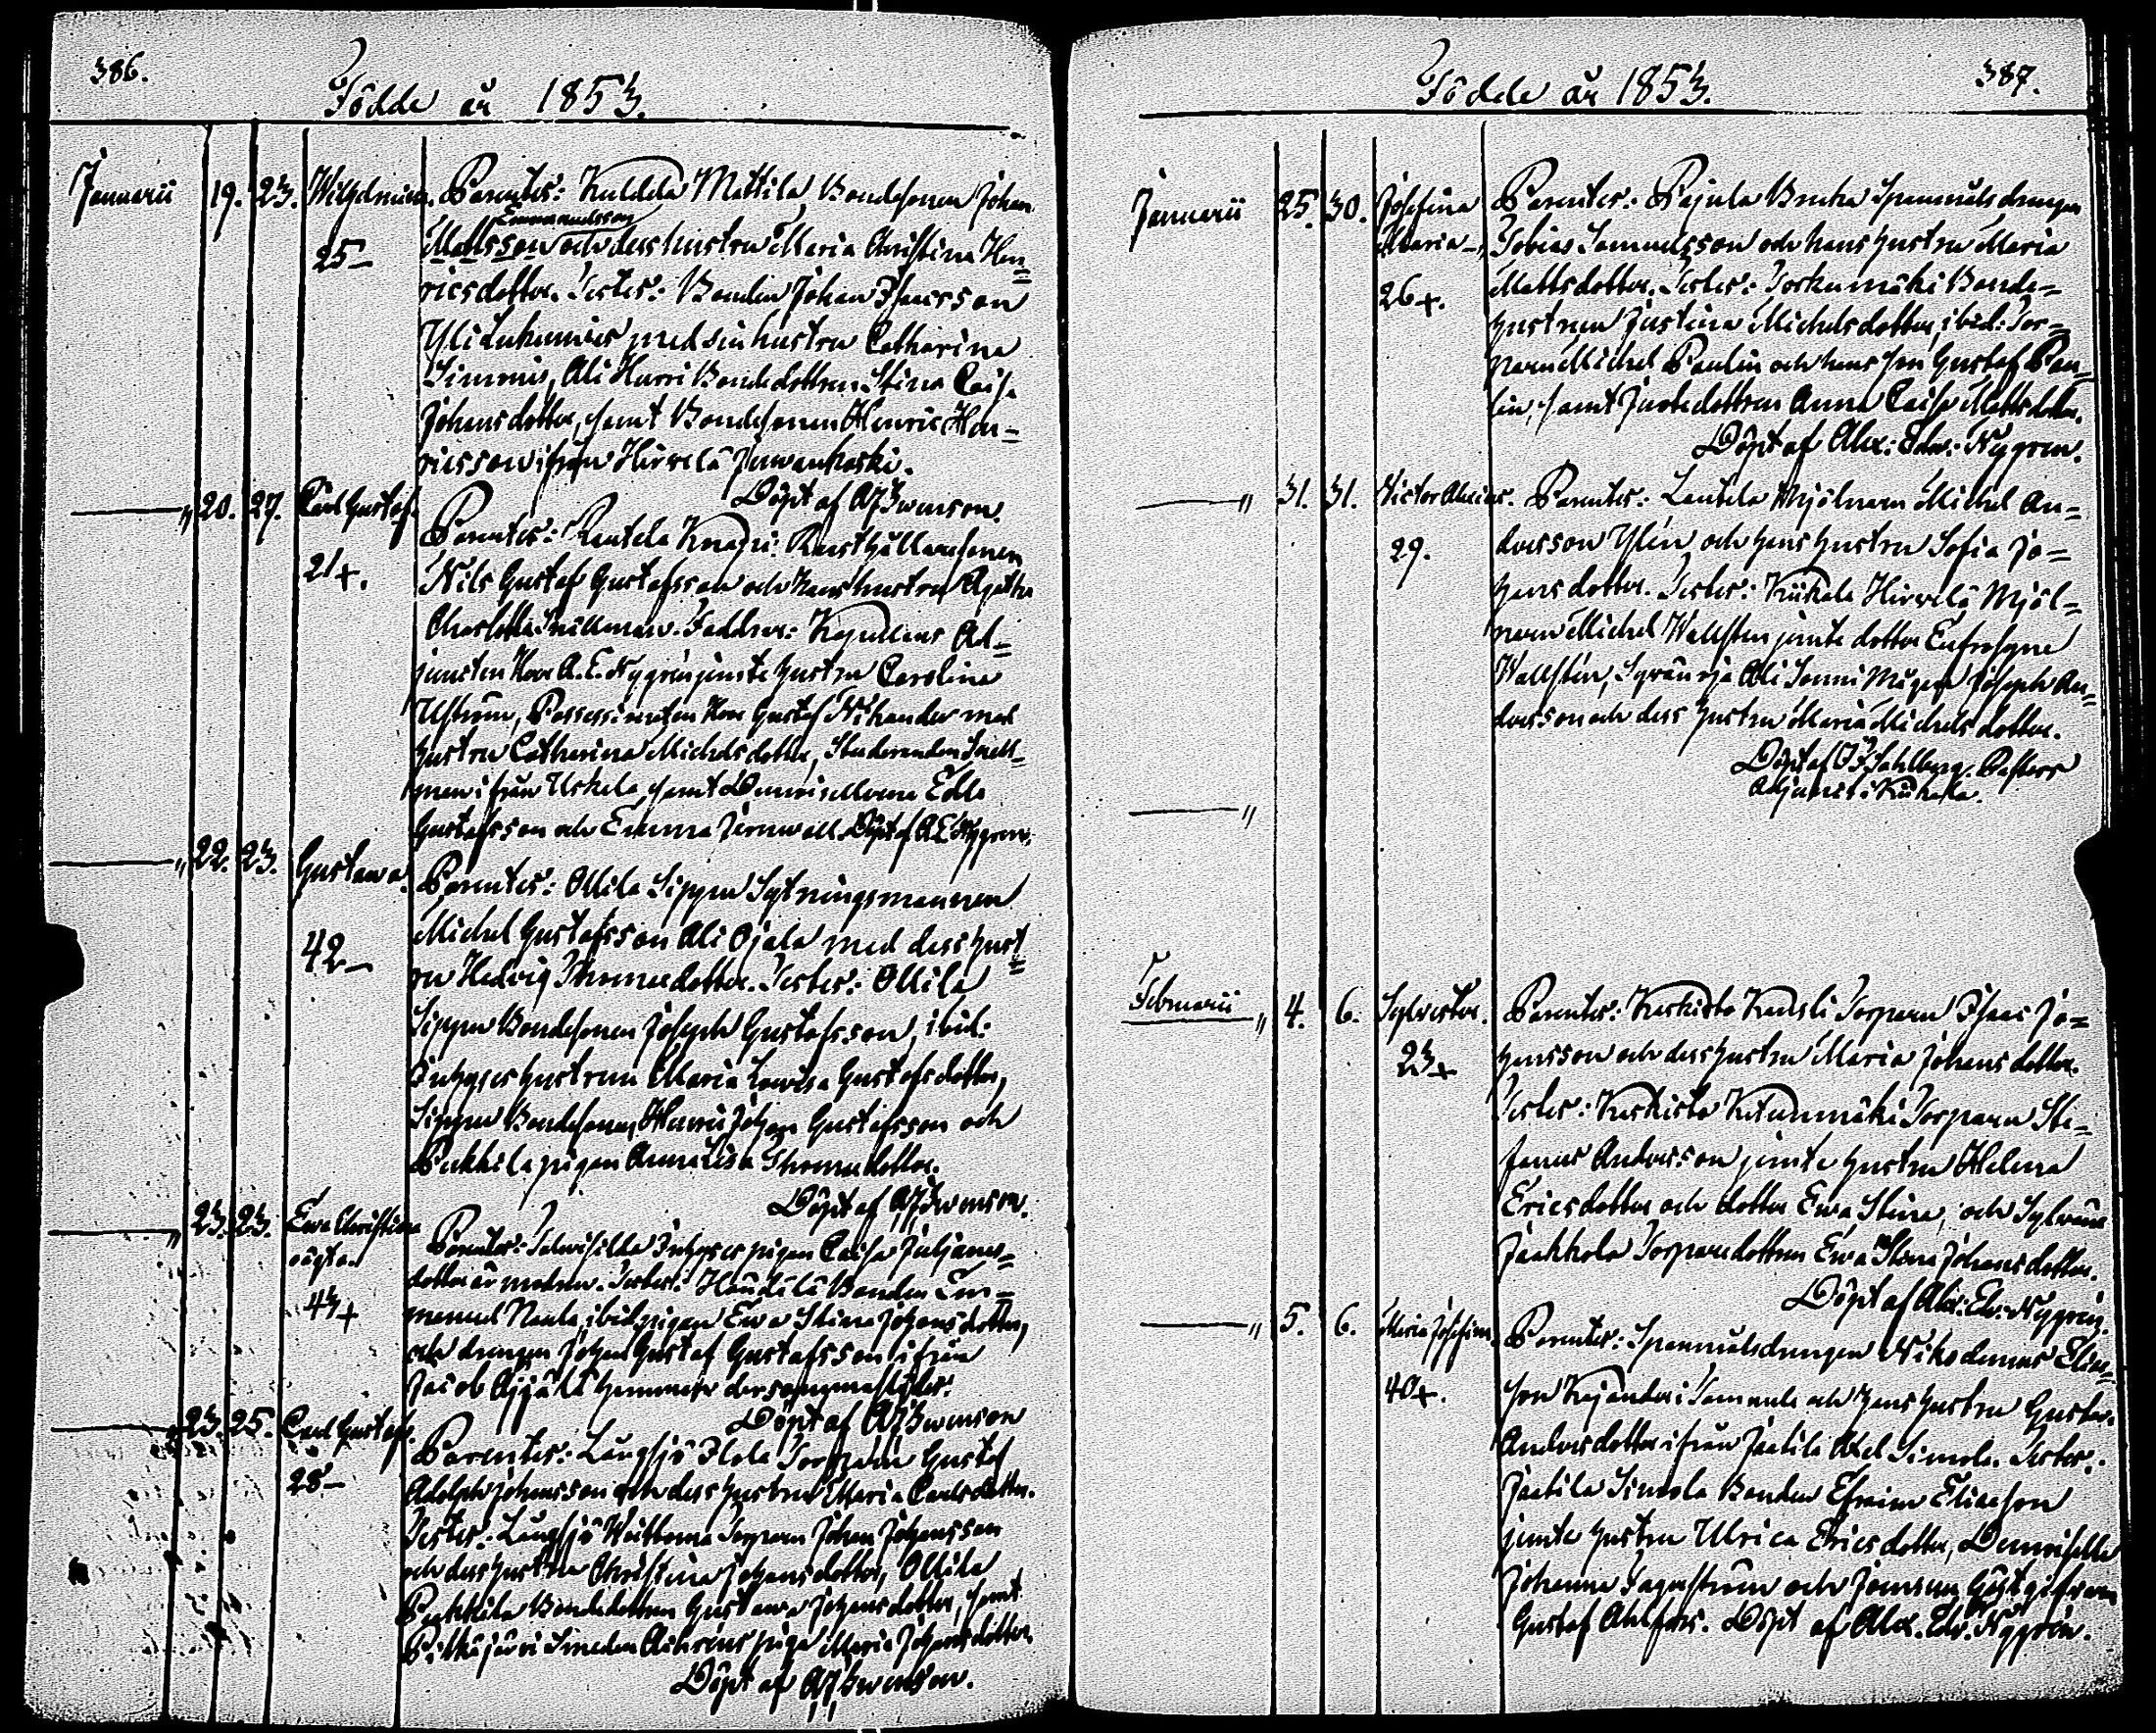 386.
Födde år 1853.
Januarii 19. 23. Wilhelmina. Parentes: Kuldela Mattila Bondesonen Johan
Emmanuelsson
25— Mattsson och dess hustru Maria Christina Hen=
ricsdotter. Testes: Bonden Johan Isacsson
Yli med sin hustru Catharina
Simmis, Ali Harri Bondedottren Stina Caisa
Johansdotter, samt Bondesonen Henric Hen=
ricsson ifrån Hirvelä Juvankoski.
Döpt af
—„ 20. 27. Carl Gustaf. Parentes: Rautela Knapi Rusthållaresonen
21+. Nils Gustaf Gustafsson och hans hustru Agatha
Charlotta Snellman. Faddrar: Kapellans Ad=
juncten Herr A. E. Nygrén jemte hustru Carolina
Possessionaten Herr Gustaf Nikander med
hustru Catharina Michelsdotter, Studeranden Snell=
man ifrån Uskela samt Demoisellerna Edla
Gustafsson och Emma Jernvall. Döpt af A E Nygrén.
—„ 22. 23. Gustava. Parentes: Ollila Sippu Sytningsmannen
42— Michel Gustafsson Ali Ojala med dess hust=
ru Hedvig Thomasdotter. Testes: Ollila
Sippu Bondesonen Joseph Gustafsson, ibid:
Inhyses hustrun Maria Lovisa Gustafsdotter,
Sippu Bondesonen Johan Gustafsson och
Pukkila pigan Anna Lisa Thomasdotter.
Döpt af
—„ 23. 23. Ewa Christina Parentes: Inhyses pigan Caisa Juliana=
oägta. dotter är modren. Testes: Bonden Em=
43+ manuel ibid, pigan Ewa Stina Johansdotter,
och drengen Johan Gustaf Gustafsson ifrån
Jacob hemman dersammastädes.
Döpt af
—„ 23. 25. Carl Gustaf. Parentes: Långsjö Torparen Gustaf
28— Adolph Johansson och dess hustru Maria Carlsdotter.
Testes: Långsjö Torparen Johan Johansson
och dess hustru Christina Johansdotter, Ollila
Pukkila Bondedottren Gustava Johansdotter, samt
Pitkäjärvi Smeden piga Maria Johansdotter.
Döpt af
387.
Födde år 1853.
Januarii 25. 30. Josefina Parentes: Pajula Spannmålsdrengen
Maria—, Tobias Samuelsson och hans hustru Maria
26+. Mattsdotter. Testes: Torkumäki Bonde=
hustrun Justina Michelsdotter, ibid: Tor=
paren Michel Paulin och hans son Gustaf Pau=
lin, samt Anna Caisa Mattsdotter.
Döpt af Alex: Edv: Nygrén.
—„ 31. 31. Victor Parentes: Lautela Mjölnaren Michel An=
29. dersson Ylén och hans hustru Sofia Jo=
hansdotter. Testes: Kiikala Hirvelä Mjöl=
naren Michel Wallsten jemte dotter Eufrosyne
Wallstén, Ali Sonni Joseph An=
dersson och dess hustru Maria Michelsdotter.
Döpt af Sahlberg. Pastors
Adjunct i Kiikala.
—„
Februarii „ 4. 6. Sylvester. Parentes: Kaskisto Torparen Isaac Jo=
23+ hansson och dess hustru Maria Johansdotter.
Testes: Kaskisto Ketunmäki Torparen Ste=
fanus Andersson jemte hustru Helena
Ericsdotter och dotter Ewa Stina, och
Jaakkola Torparedottren Ewa Stina Johansdotter.
Döpt af Alex: Edv: Nygrén.
—„ 5. 6. Maria Josefina. Parentes: Spannmålsdrengen Nikodemus Elias=
40+. son i Somernale och hans hustru Gustava
Andersdotter ifrån Jaatila Simola. Testes:
Jaatila Simola Bonden Efraim Eliasson
jemte hustru Ulrica Ericsdotter, Demoiselle
Johanna Fagerström och Gästgifvaren
Gustaf Ahlfors. Döpt af Alex. Edv. Nygrén.